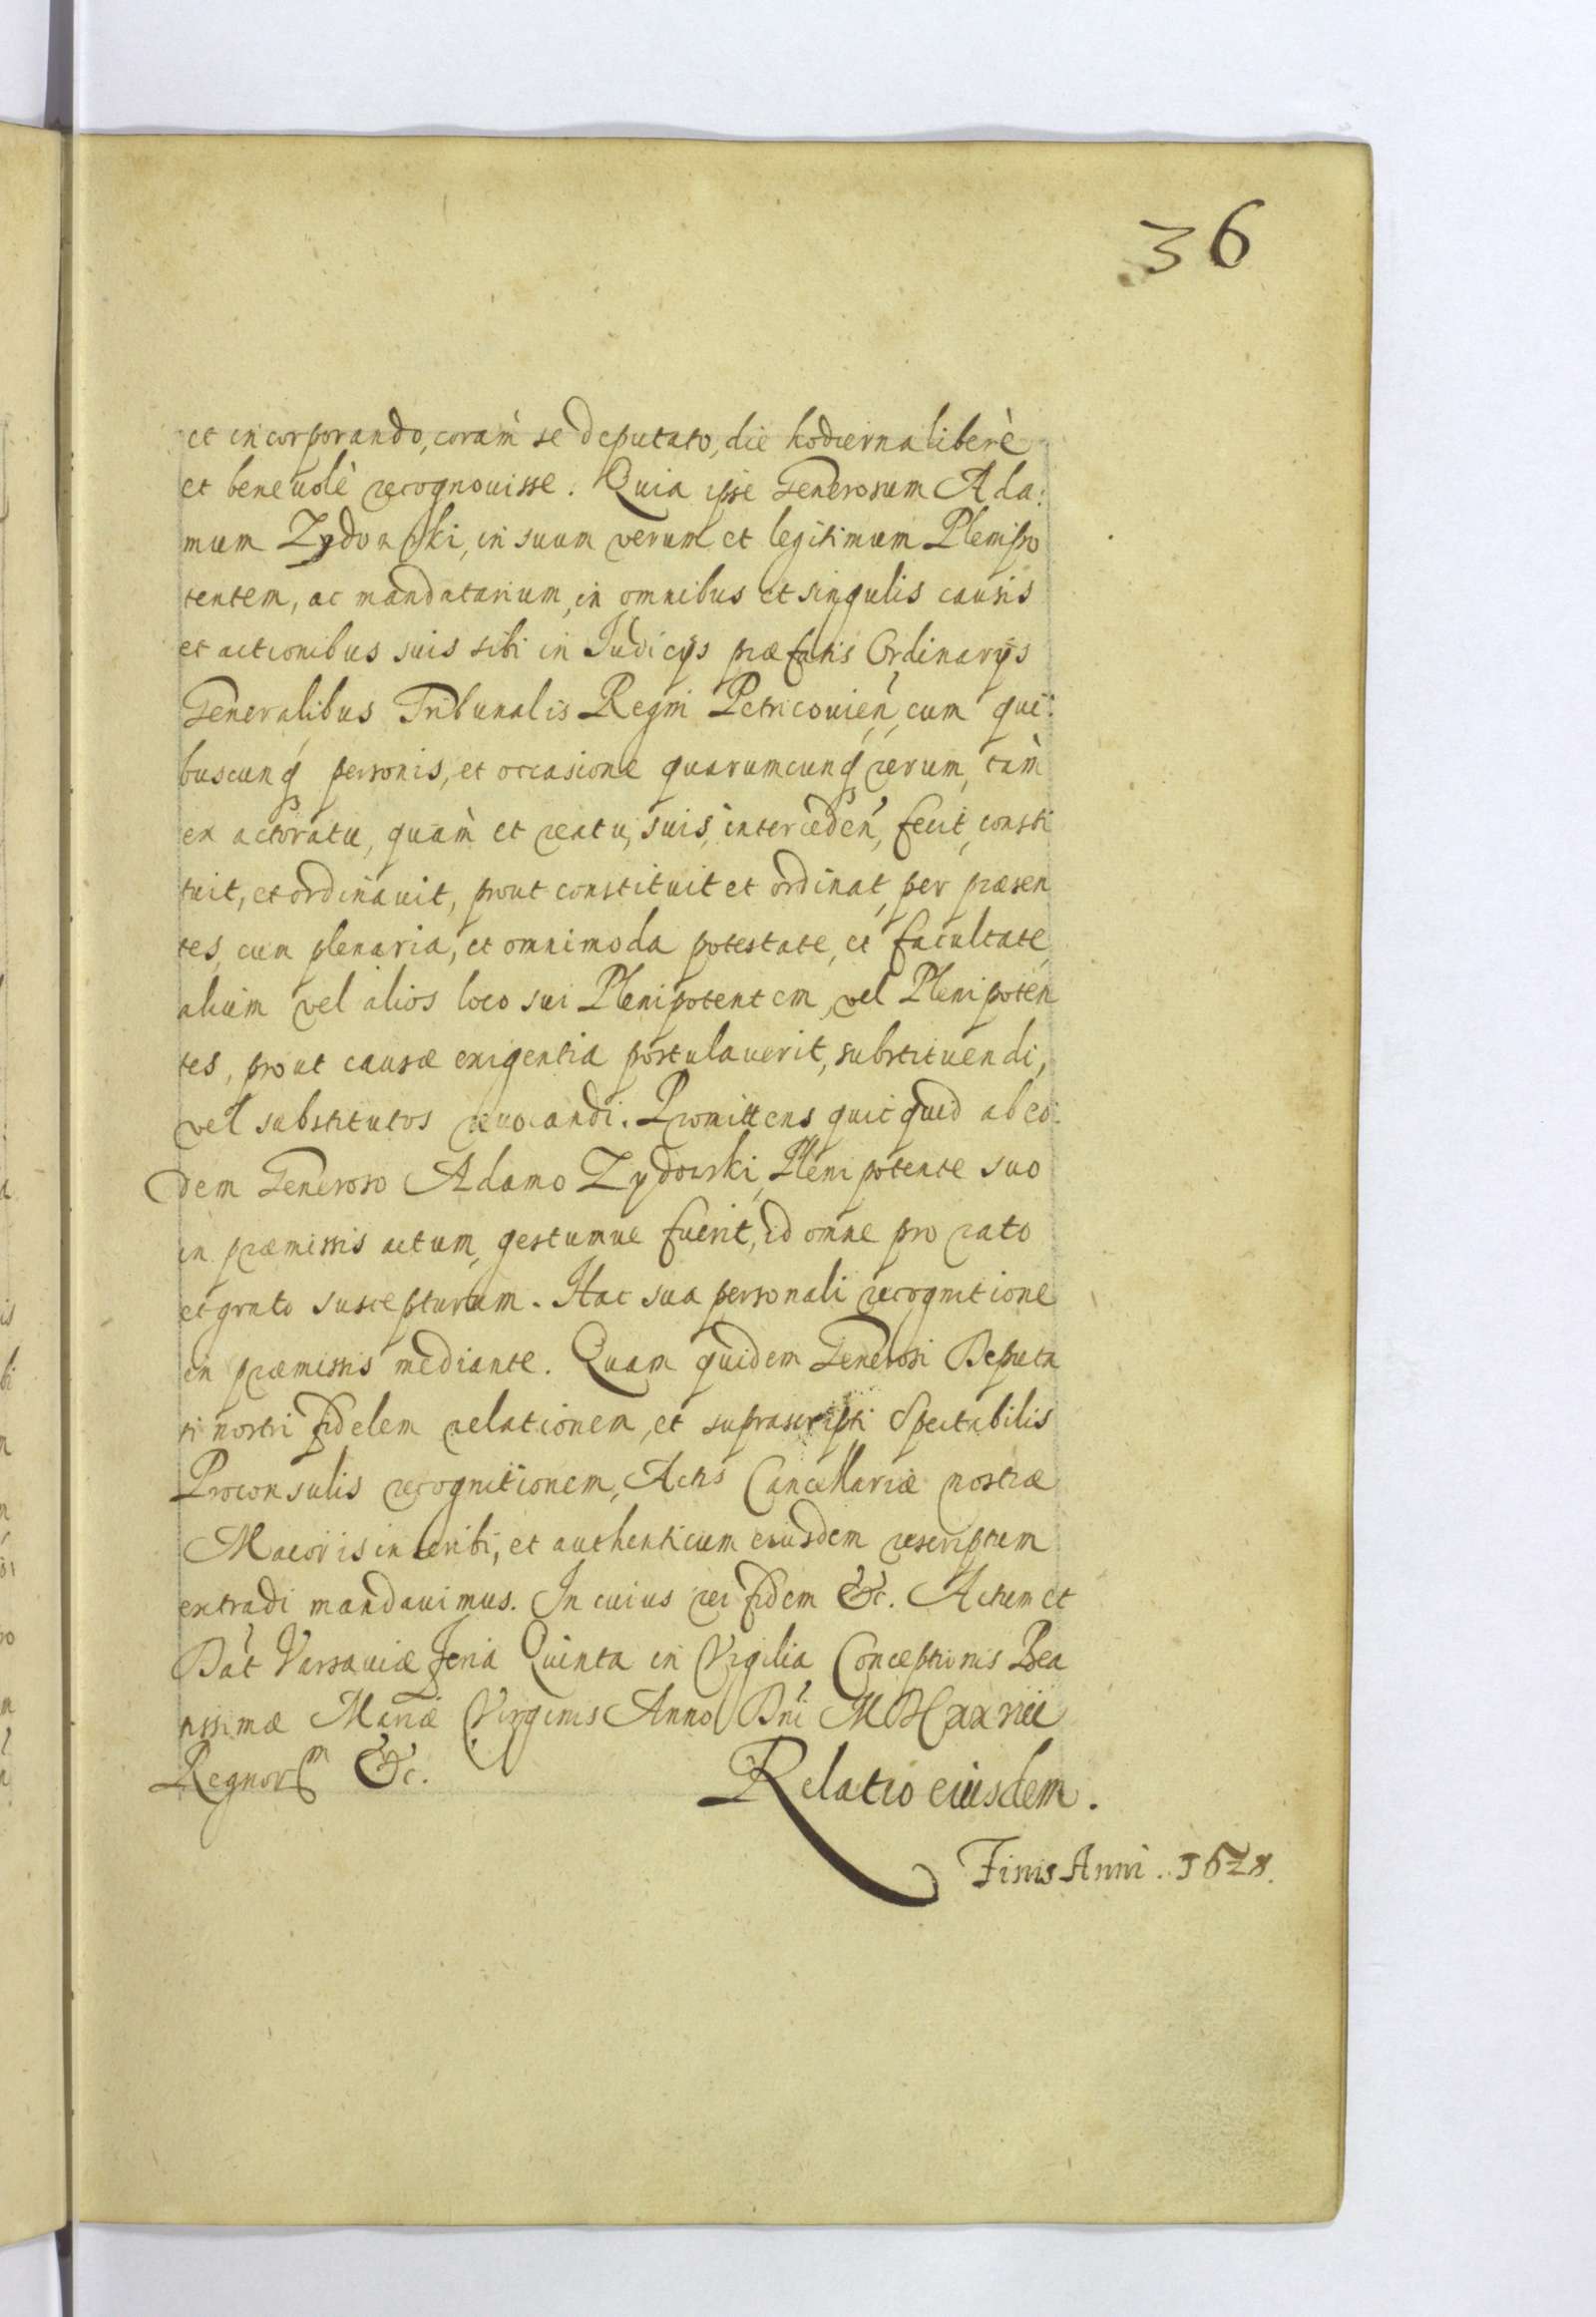 36
et incorporando, coram̀ se deputato, die hodierna liberè
et beneuolè recognouisse. Quia ipse Generosum Ada:
mum Zydowski, in suum verum et legitimum Plenipo
tentem, ac mandatarium, in omnibus et singulis causis
et actionibus suis sibi in Iudicijs præfatis Ordinarijs
Generalibus Tribunalis Regni Petricouień, cum qui:
buscunq personis, et occasione quarumcunq rerum, tam̀
ex actoratu, quam̀ et reatu, suis, interceden, fecit, consti
tuit, et ordinauit, prout constituit et ordinat, per præsen
tes, cum plenaria, et omnimoda potestate, et facultate,
alium vel alios loco sui Plenipotentem, vel Plenipoten
tes, prout causæ exigentia postulauerit, substituendi,
vel substitutos reuocandi. Promittens quicquid ab eo:
dem Generoso Adamo Zydowski, Plenipotente suo
in præmissis actum, gestumue fuerit, id omne pro rato
et grato suscepturum. Hac sua personali recognitione
in præmissis mediante. Quam quidem Generosi Deputa
ti nostri fidelem relationem, et suprascripti Spectabilis
Proconsulis recognitionem, Actis Cancellariæ nostræ
Maioris inscribi, et authenticum eiusdem rescriptum
extradi mandauimus. In cuius rei fidem &c. Actum et
Dat Varsauiæ Feria Quinta in Vigilia Conceptionis Bea
tissimæ Mariæ Virginis Anno Dni MDCxxviii
Regnorm &c.
Relatio eiusdem.
Finis Anni. 1628.